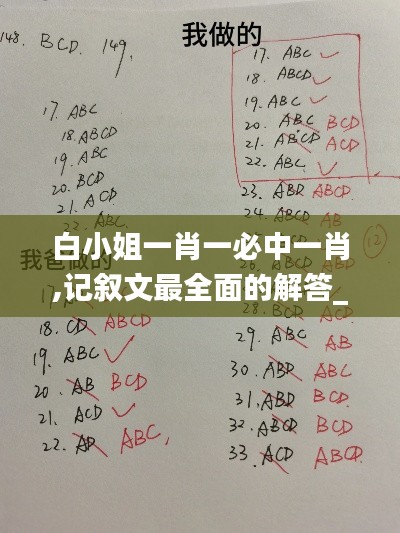 148. BCD. 149,
我做的
17. ABC
18. ABCD
19. ABC
20. BCD
21. ACD
17. ABC
18. ABCD
19. ABC
20. ABC BCD
21. ABCD ACD
22. ABC
23. ABD ABCD
24. ABCD
白小姐一肖一必中一肖
,记叙文最全面的解答_
我爸做的
12
18. CD ABCD
19. ABC
20. AB BCD
21. ACD
22. AD ABC,
29. ABC AB
30. ABD ABC
31. ABD BCD
32. ABCD BCD
33. ACD ABCD